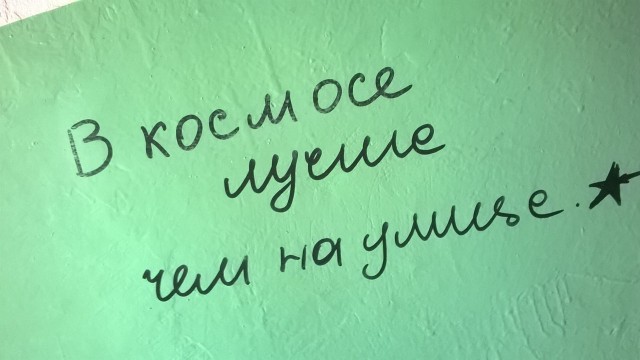 В космосе
лучше
чем на улице.